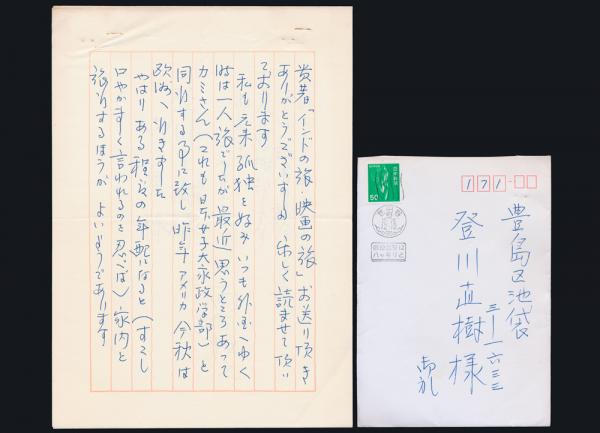 貴著「インドの旅・映画の旅」お送り頂き
ありがとうございます 楽しく読ませて頂い
ております
私も元来孤独を好み いつも外国へゆく
時は一人旅でしたが 最近 思うところあって
カミさん(これも日本女子大家政学部)と
同行する事に致し 昨年 アメリカ 今秋は
欧洲へ行きました
やはり ある程度の年配になると(すこし
口やかましく言われるのを忍べば)家内と
旅行するほうが よいようであります
50
171-
豊島区池袋
三-一六三三
登川直樹様